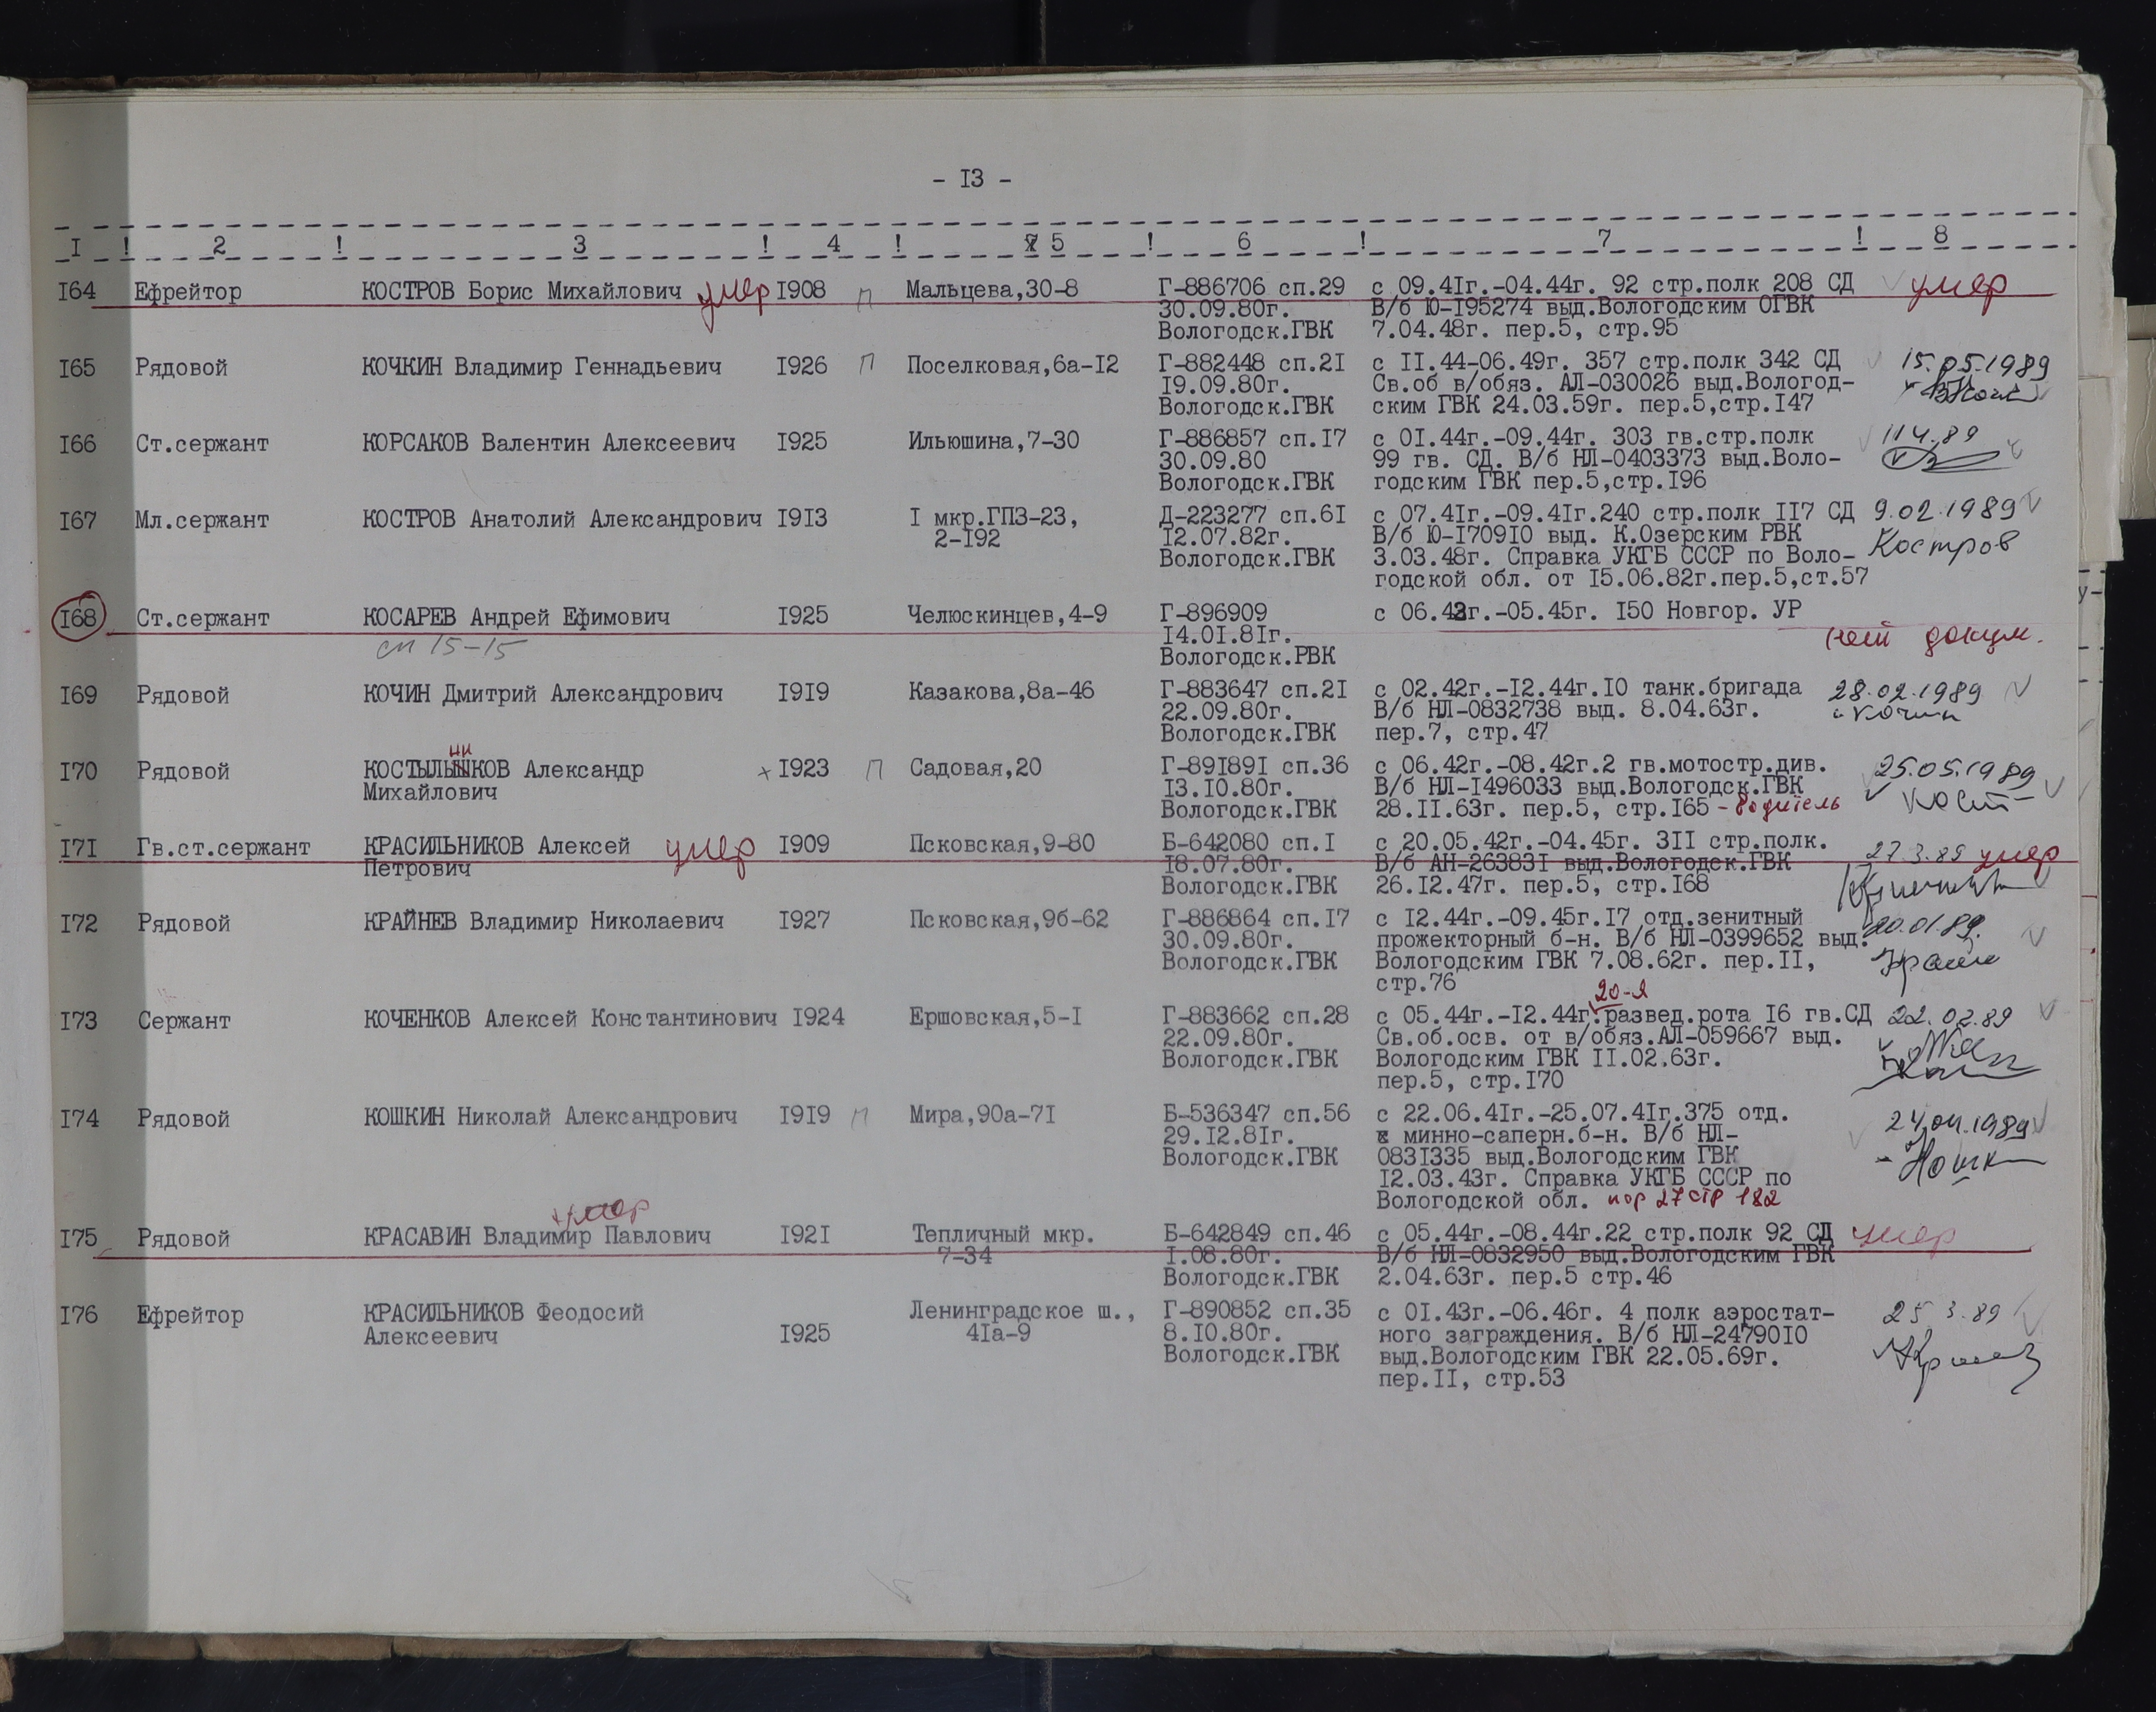 - I3 -
I ! 2 ! 3 ! 4 ! 5 ! 6 ! 7 ! 8
I64 Ефрейтор КОСТРОВ Борис Михайлович умер I908 П Мальцева,30-8 Г-886706 сп.29 с 09.4Iг.-04.44г. 92 стр.полк 208 СД умер
30.09.80г. В/б Ю-I95274 выд.Вологодским ОГВК
Вологодск.ГВК 7.04.48г. пер.5, стр.95
I65 Рядовой КОЧКИН Владимир Геннадьевич I926 П Поселковая,6а-I2 Г-882448 сп.2I с II.44-06.49г. 357 стр.полк 342 СД 15.05.1989
I9.09.80г. Св.об в/обяз. АЛ-030026 выд.Вологод-
Вологодск.ГВК ским ГВК 24.03.59г. пер.5,стр.I47
I66 Ст.сержант КОРСАКОВ Валентин Алексеевич I925 Ильюшина,7-30 Г-886857 сп.I7 с 0I.44г.-09.44г. 303 гв.стр.полк 11 4.89
30.09.80 99 гв. СД. В/б НЛ-0403373 выд.Воло-
Вологодск.ГВК годским ГВК пер.5,стр.I96
I67 Мл.сержант КОСТРОВ Анатолий Александрович I9I3 I мкр.ГПЗ-23, Д-223277 сп.6I с 07.4Iг.-09.4Iг.240 стр.полк II7 СД 9.02.1989
2-I92 I2.07.82г. В/б Ю-I709I0 выд. К.Озерским РВК
Вологодск.ГВК 3.03.48г. Справка УКГБ СССР по Воло- Костров
годской обл. от I5.06.82г.пер.5,ст.57
I68 Ст.сержант КОСАРЕВ Андрей Ефимович I925 Челюскинцев,4-9 Г-896909 с 06.43г.-05.45г. I50 Новгор. УР
сп 15-15 I4.0I.8Iг. нет докум.
Вологодск.РВК
I69 Рядовой КОЧИН Дмитрий Александрович I9I9 Казакова,8а-46 Г-883647 сп.2I с 02.42г.-I2.44г.I0 танк.бригада 28.02.1989
22.09.80г. В/б НЛ-0832738 выд. 8.04.63г. Кочин
Вологодск.ГВК пер.7, стр.47
нн
I70 Рядовой КОСТЫЛЫШКОВ Александр I923 П Садовая,20 Г-89I89I сп.36 с 06.42г.-08.42г.2 гв.мотостр.див. 25.05.1989
Михайлович I3.I0.80г. В/б НЛ-I496033 выд.Вологодск.ГВК
Вологодск.ГВК 28.II.63г. пер.5, стр.I65 - водитель Кост
I7I Гв.ст.сержант КРАСИЛЬНИКОВ Алексей умер I909 Псковская,9-80 Б-642080 сп.I с 20.05.42г.-04.45г. 3II стр.полк. 27.3.89 умер
Петрович I8.07.80г. В/б АН-26383I выд.Вологодск.ГВК
Вологодск.ГВК 26.I2.47г. пер.5, стр.I68
I72 Рядовой КРАЙНЕВ Владимир Николаевич I927 Псковская,9б-62 Г-886864 сп.I7 с I2.44г.-09.45г.I7 отд.зенитный 20.01.89.
30.09.80г. прожекторный б-н. В/б НЛ-0399652 выд.
Вологодск.ГВК Вологодским ГВК 7.08.62г. пер.II,
стр.76
20-я
I73 Сержант КОЧЕНКОВ Алексей Константинович I924 Ершовская,5-I Г-883662 сп.28 с 05.44г.-I2.44г.развед.рота I6 гв.СД 22.02.89
22.09.80г. Св.об.осв. от в/обяз.АЛ-059667 выд.
Вологодск.ГВК Вологодским ГВК II.02.63г.
пер.5, стр.I70
I74 Рядовой КОШКИН Николай Александрович I9I9 П Мира,90а-7I Б-536347 сп.56 с 22.06.4Iг.-25.07.4Iг.375 отд. 24.04.1989
29.I2.8Iг. минно-саперн.б-н. В/б НЛ-
Вологодск.ГВК 083I335 выд.Вологодским ГВК Кошк
I2.03.43г. Справка УКГБ СССР по
Вологодской обл. пор 27 стр 182
умер
I75 Рядовой КРАСАВИН Владимир Павлович I92I Тепличный мкр. Б-642849 сп.46 с 05.44г.-08.44г.22 стр.полк 92 СД умер
7-34 I.08.80г. В/б НЛ-0832950 выд.Вологодским ГВК
Вологодск.ГВК 2.04.63г. пер.5 стр.46
I76 Ефрейтор КРАСИЛЬНИКОВ Феодосий Ленинградское ш., Г-890852 сп.35 с 0I.43г.-06.46г. 4 полк аэростат- 25.3.89
Алексеевич I925 4Iа-9 8.I0.80г. ного заграждения. В/б НЛ-24790I0
Вологодск.ГВК выд.Вологодским ГВК 22.05.69г.
пер.II, стр.53